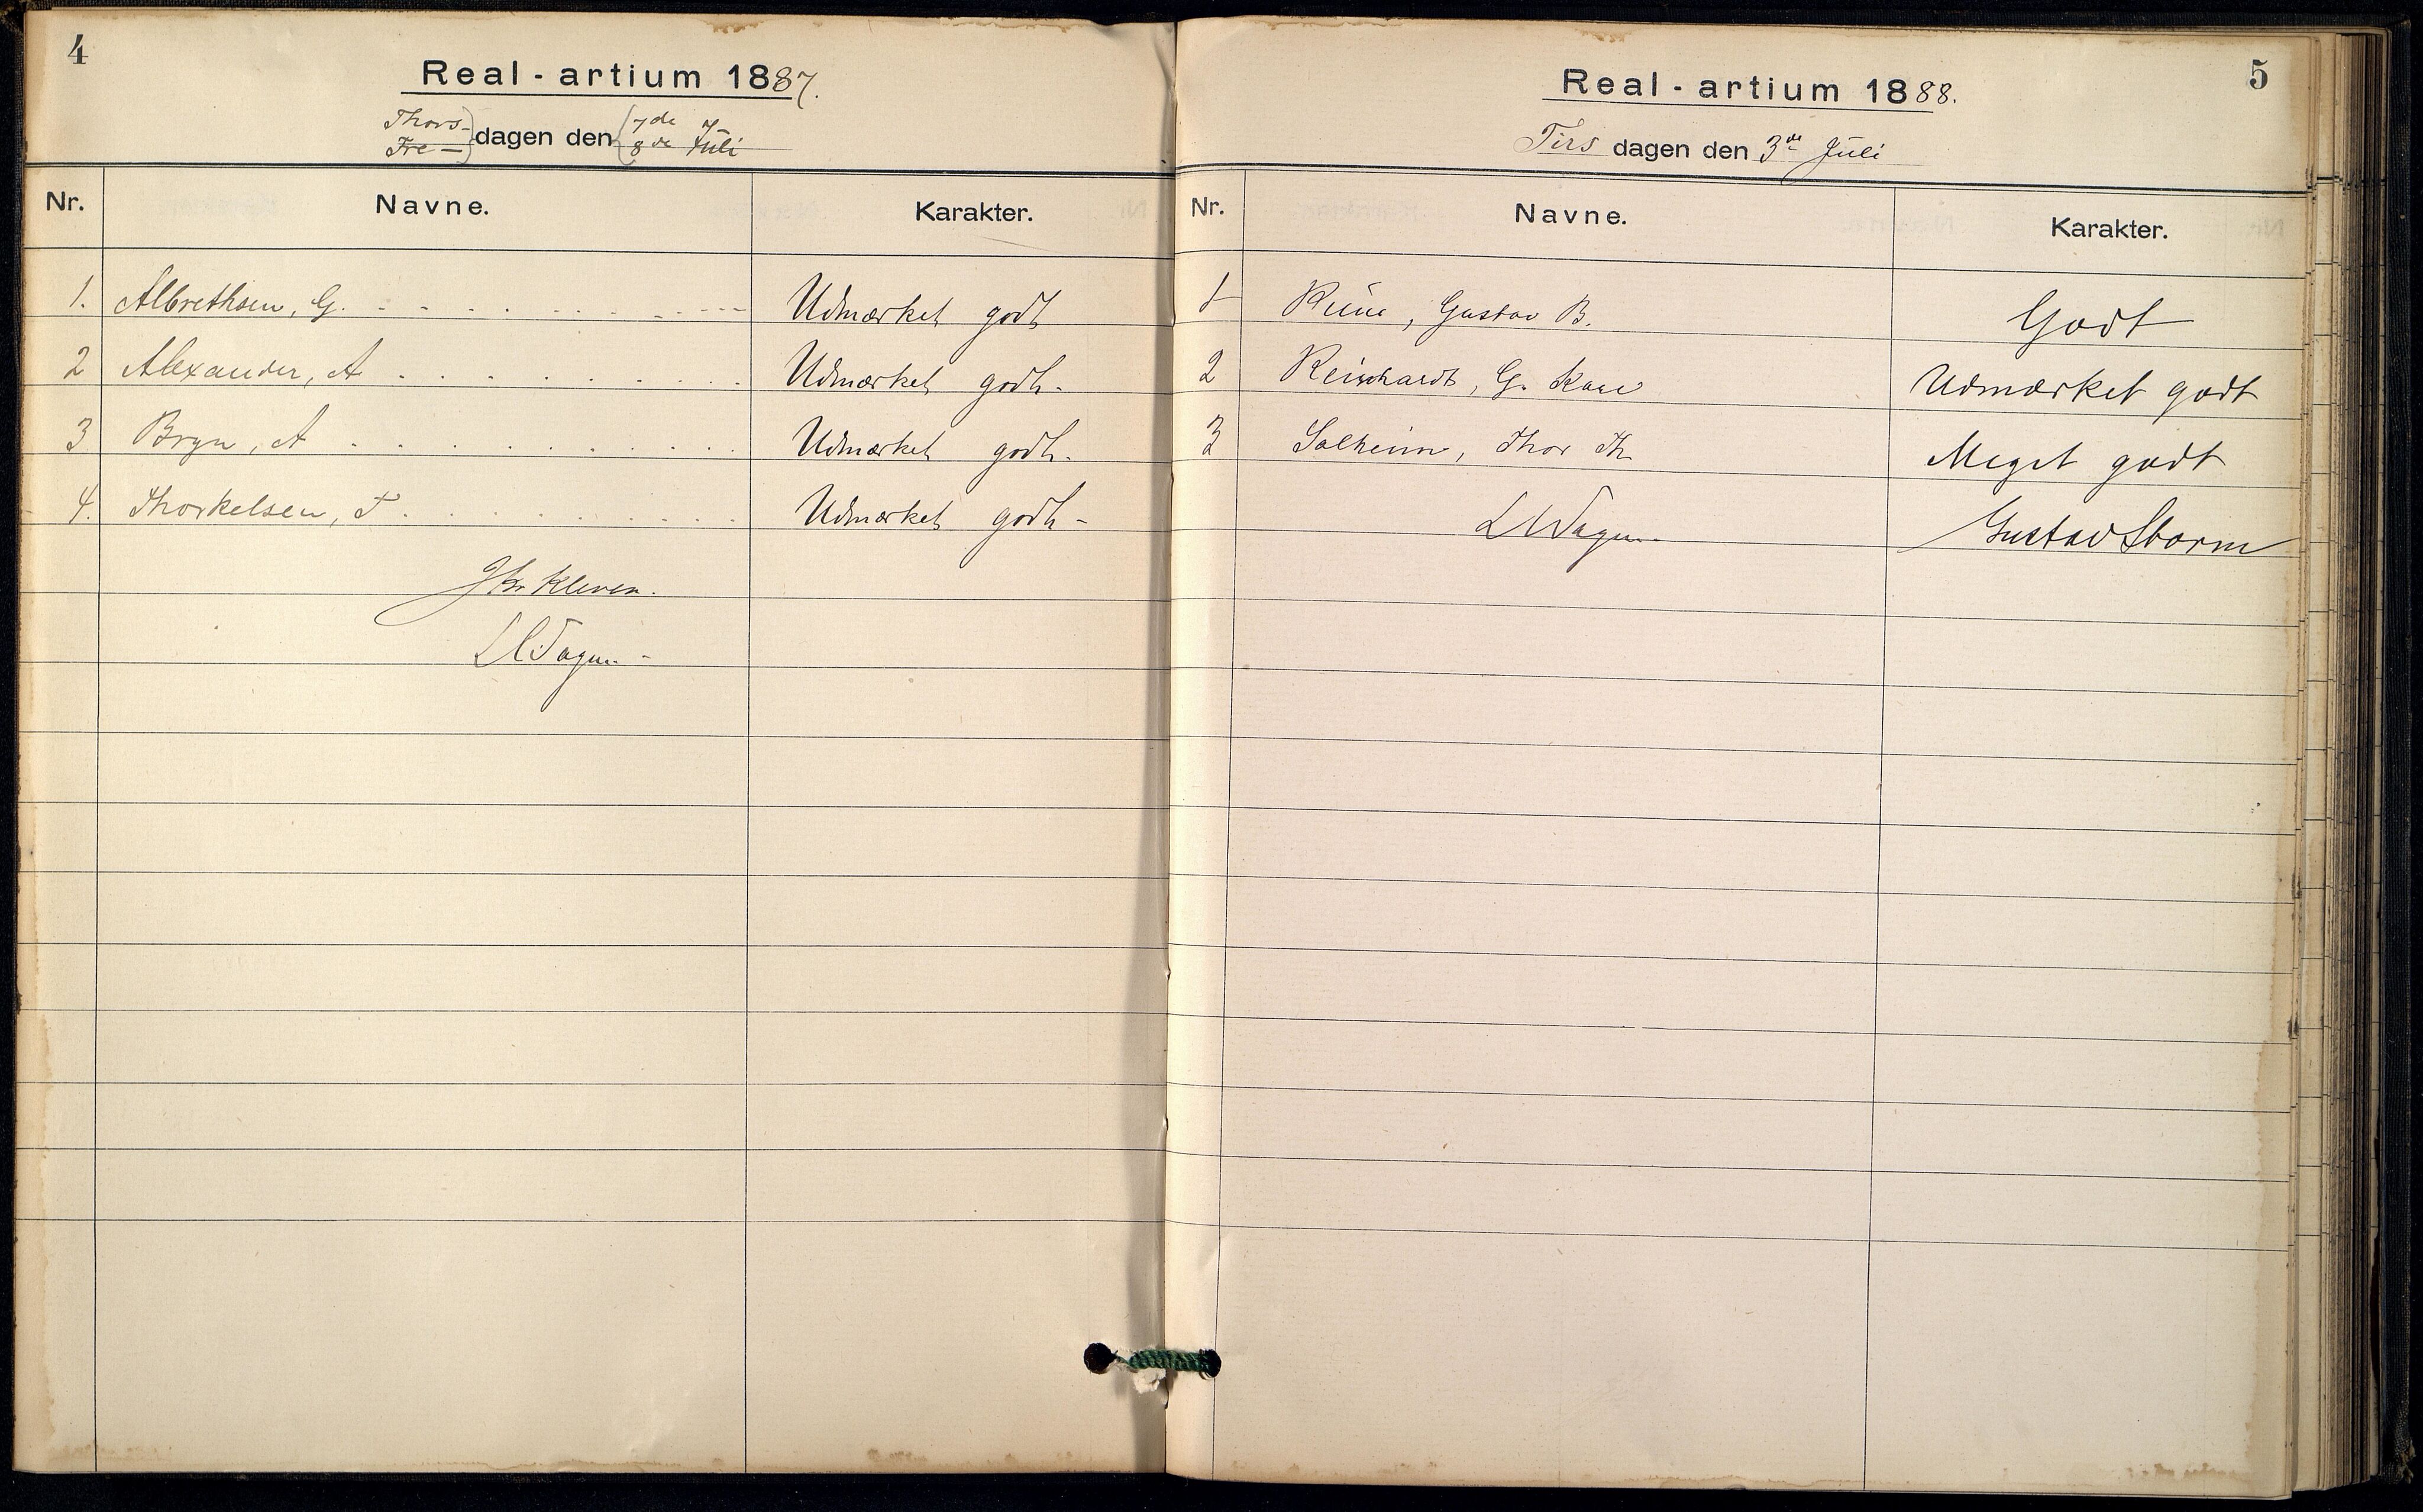 4
Real - artium 1887.
Thors- dagen den 7de
Fre — 8de Juli
Nr. Navne. Karakter.
1. Albrethsen, G. Udmærket godt
2 Alexander, A Udmærket godt.
3 Bryn, A Udmærket godt.
4. Thorkelsen, T. Udmærket godt -
Kleven.
5
Real - artium 1888.
Tirs dagen den 3de Juli
Nr. Navne. Karakter.
1 Gustav B. Godt
2 Reinhardt, G. Udmærket godt
3 Solheim, Thor Th. Meget godt
Gustav Storm